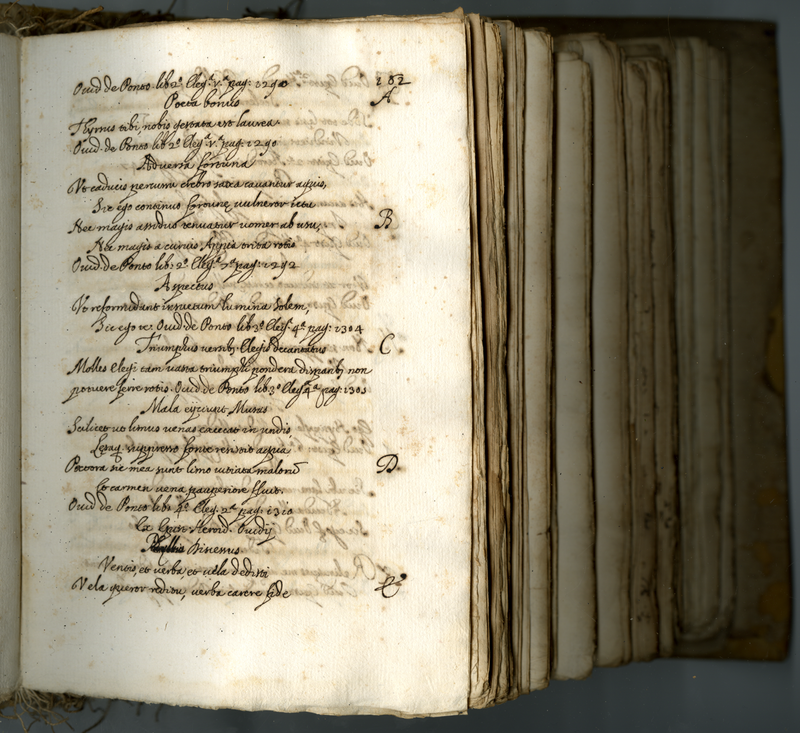 Ouid de Ponto lib 2º Eleg.ª v.ª pag: 1290 182
Poeta bonus A
Thyrsus tibi, nobis gestata est laurea.
Ouid. de Ponto lib 2º Eleg.ª v.ª pag: 1290
Aduersa fortuna
Vt caducis percussu crebro saxa cauantur aquis,
Sic ego continuo fortunę vulneror ictu
Nec magis assiduo tenuatur uomer ab usu, B
Nec magis a curuis Appia trita rotis
Ouid. de Ponto lib: 2º Eleg.ª 7ª pag: 1292
Aspectus
Vt reformidant insuetum lumina solem,
Sic ego &c. Ouid de Ponto lib 3º Eleg.ª 4ª pag: 1304
Triumphus versib; Elegis decantatus C
Molles elegi tam uasta triumphi pondera disparib; non
potuere ferre rotis. Ouid de Ponto lib 3º Eleg.ª 4ª pag: 1305
Mala eijciunt Musas
Scilicet ut limus uenas caecat in undis,
Lęsaq; suppresso fonte resistit aqua
Pectora sic mea sunt limo uitiata malorū D.
Et carmen uena pauperiore fluit.
Ouid de Ponto lib: 4º Eleg. 2ª pag: 1310
Ex Epist. Heroid. Ouidij
Bisensus
Ventis, et uerba et uela dedisti
Vela queror reditu, uerba carere fide